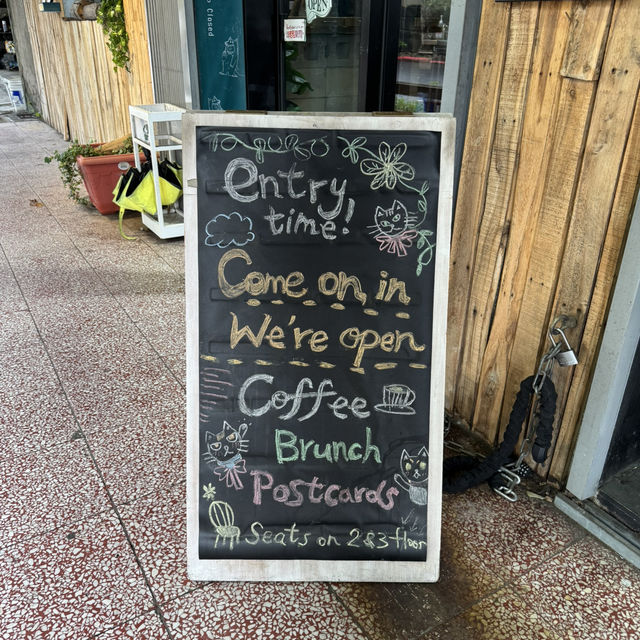 OPEN
Closed
entry
time!
Come on in
We're open
Coffee
Brunch
Postcards
Seats on 2&3 floor